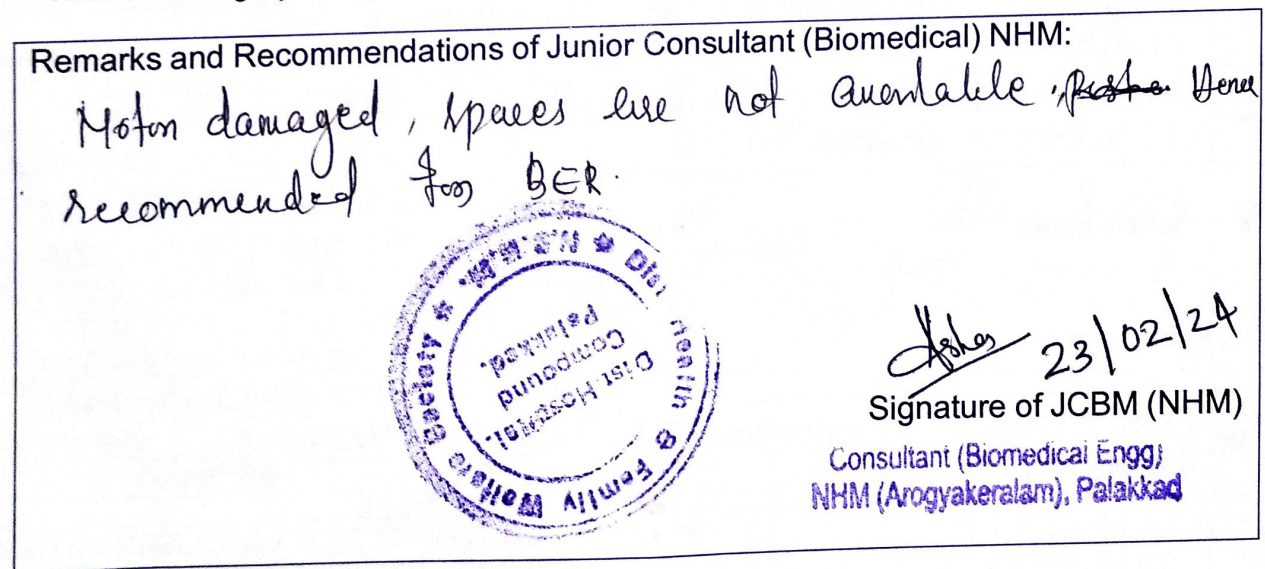 Remarks and Recommendations of Junior Consultant (Biomedical) NHM:
Motor damaged, spares are not available, Hence
recommended for BER.
Dist Health & Family Welfare Society * N.R.H.M *
Dist Hospital.
Compound
Palakkad.
23/02/24
Signature of JCBM (NHM)
Consultant (Biomedical Engg)
NHM (Arogyakeralam), Palakkad